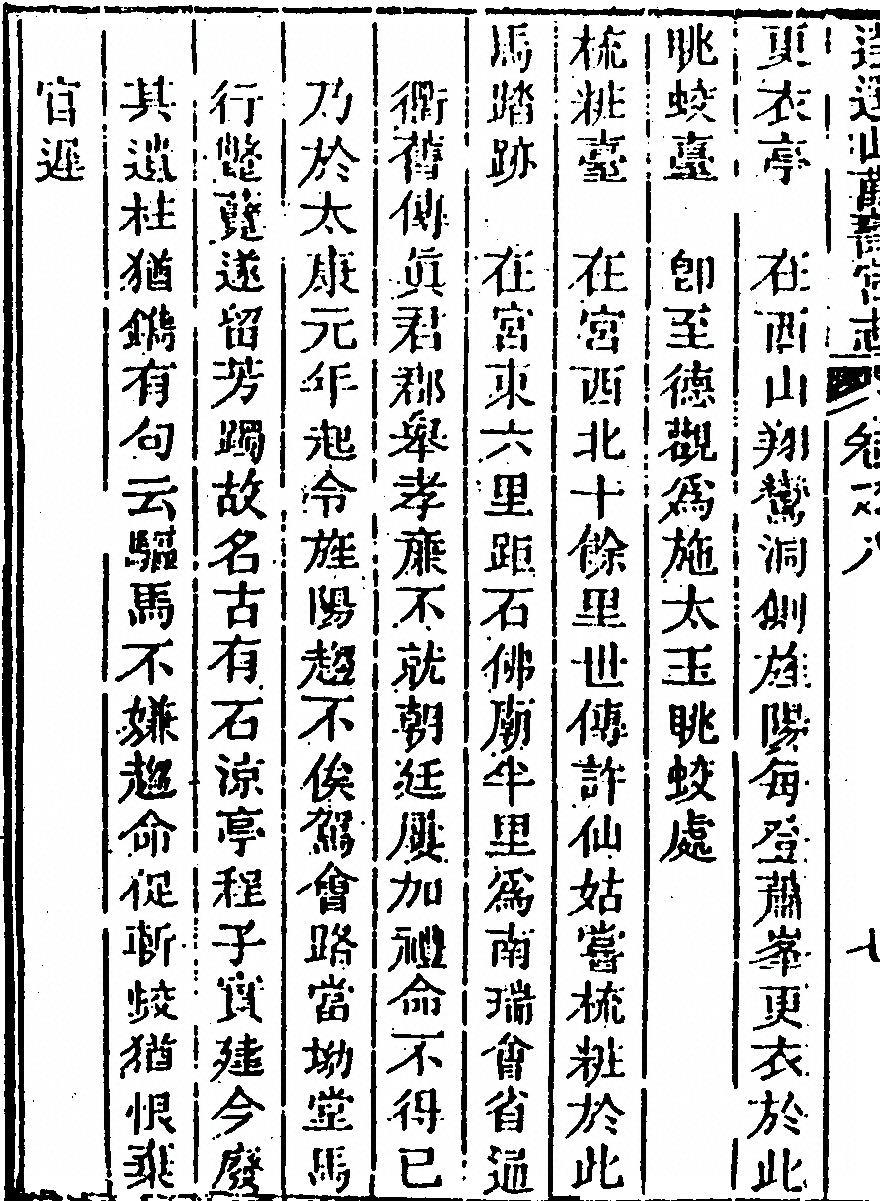 逍遙山萬壽宮志 卷之八 七
更衣亭 在西山翔鸞洞側旌陽每登蕭峯更衣於此
眺蛟臺 卽至德觀爲施太玉眺蛟處
梳粧臺 在宮西北十餘里世傳許仙姑嘗梳粧於此
馬踏跡 在宮東六里距石佛廟半里爲南瑞會省通
衢舊傳眞君郡舉孝廉不就朝廷屢加禮命不得已
乃於太康元年起令旌陽趨不俟駕會路當坳堂馬
行蹩躠遂留芳躅故名古有石涼亭程子實建今廢
其遺柱猶鐫有句云驅馬不嫌趨命促斬蛟猶恨棄
官遲